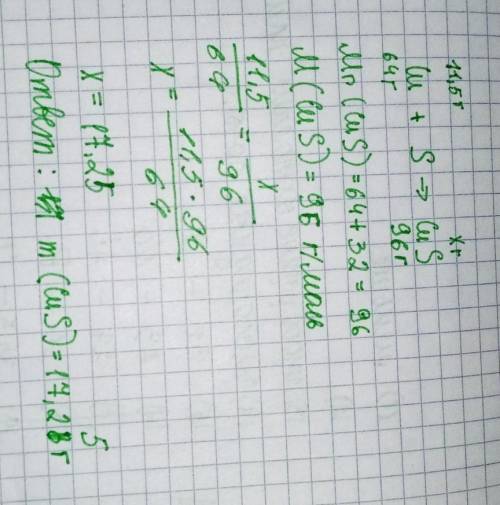 11,5г xг
Cu + S → CuS
64г 96г
Mr (CuS) = 64 + 32 = 96
M (CuS) = 96 г/моль
11,5/64 = x/96
x = 11,5 · 96/64
x = 17,25
Ответ: m (CuS) = 17,25г
5